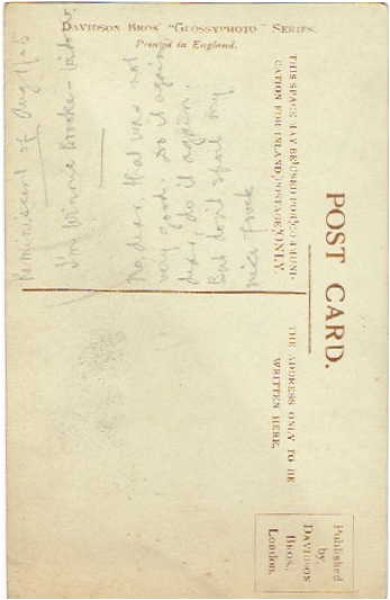 Davidson Bros' "Glossyphoto" Series.
Printed in England.
POST CARD.
THIS SPACE MAY BE USED FOR COMMUNI-
CATION FOR INLAND POSTAGE ONLY.
THE ADDRESS ONLY TO BE
WRITTEN HERE.
Published
by
Davidson
Bros.,
London.
Reminiscent of Aug
I'm Winnie Brooke -
No, dear, that was not
very good. Do it again
dear, do it again.
But don't spoil my
nice frock